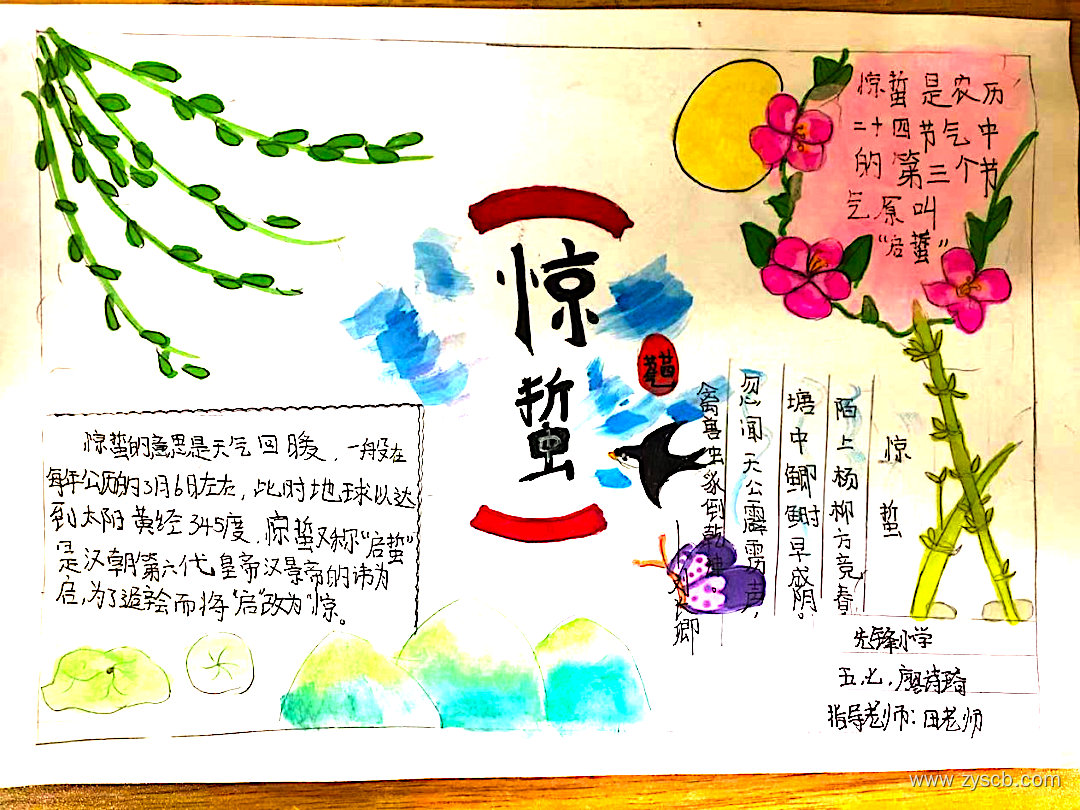 惊蛰
惊蛰是农历
二十四节气中
的第三个节
气原叫
“启蛰”
惊蛰的意思是天气回暖，一般在
每年公历的3月6日左右，此时地球以达
到太阳黄经345度，惊蛰又称“启蛰”
是汉朝第六代皇帝汉景帝的讳为
启，为了而将“启”改为“惊。
惊蛰
陌上杨柳方竞春，
塘中鲫鲥早成荫。
忽闻天公霹雳声，
禽兽虫豸倒乾坤
长卿
先锋小学
五.七.廖诗琦
指导老师：田老师
www.zyscb.com